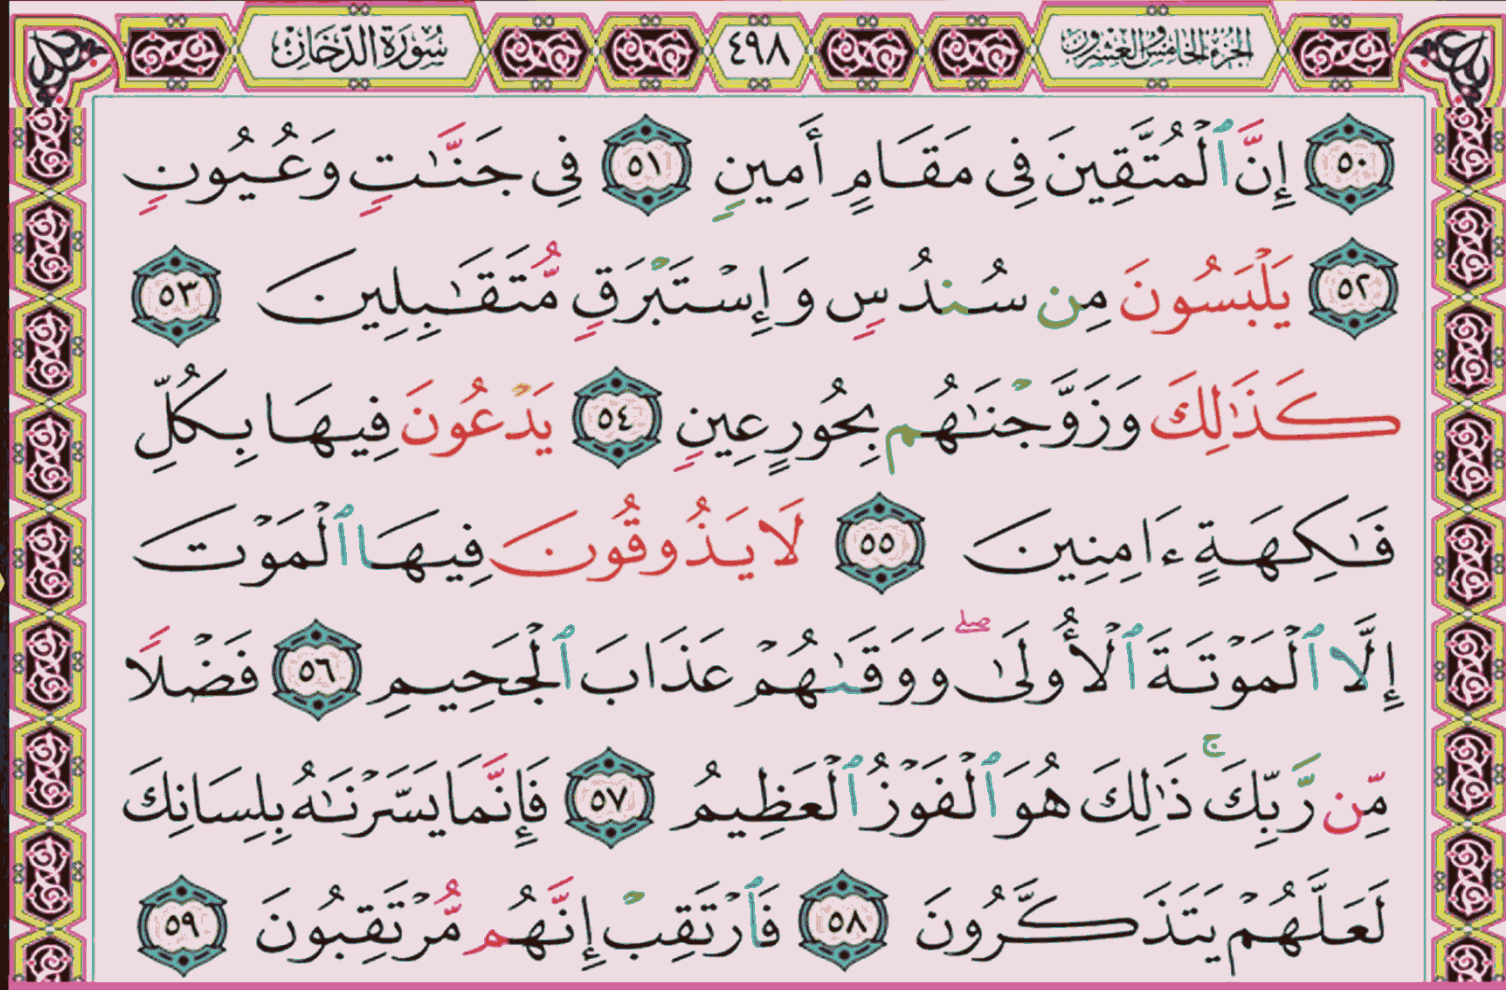 الجزء الخامس والعشرون ٤٩٨ سورة الدخان
٥٠ إِنَّ ٱلْمُتَّقِينَ فِى مَقَامٍ أَمِينٍ ٥١ فِى جَنَّـٰتٍ وَعُيُونٍ
٥٢ يَلْبَسُونَ مِن سُندُسٍ وَإِسْتَبْرَقٍ مُّتَقَـٰبِلِينَ ٥٣
كَذَٰلِكَ وَزَوَّجْنَـٰهُم بِحُورٍ عِينٍ ٥٤ يَدْعُونَ فِيهَا بِكُلِّ
فَـٰكِهَةٍ ءَامِنِينَ ٥٥ لَا يَذُوقُونَ فِيهَا ٱلْمَوْتَ
إِلَّا ٱلْمَوْتَةَ ٱلْأُولَىٰ ۖ وَوَقَىٰهُمْ عَذَابَ ٱلْجَحِيمِ ٥٦ فَضْلًا
مِّن رَّبِّكَ ۚ ذَٰلِكَ هُوَ ٱلْفَوْزُ ٱلْعَظِيمُ ٥٧ فَإِنَّمَا يَسَّرْنَـٰهُ بِلِسَانِكَ
لَعَلَّهُمْ يَتَذَكَّرُونَ ٥٨ فَٱرْتَقِبْ إِنَّهُم مُّرْتَقِبُونَ ٥٩